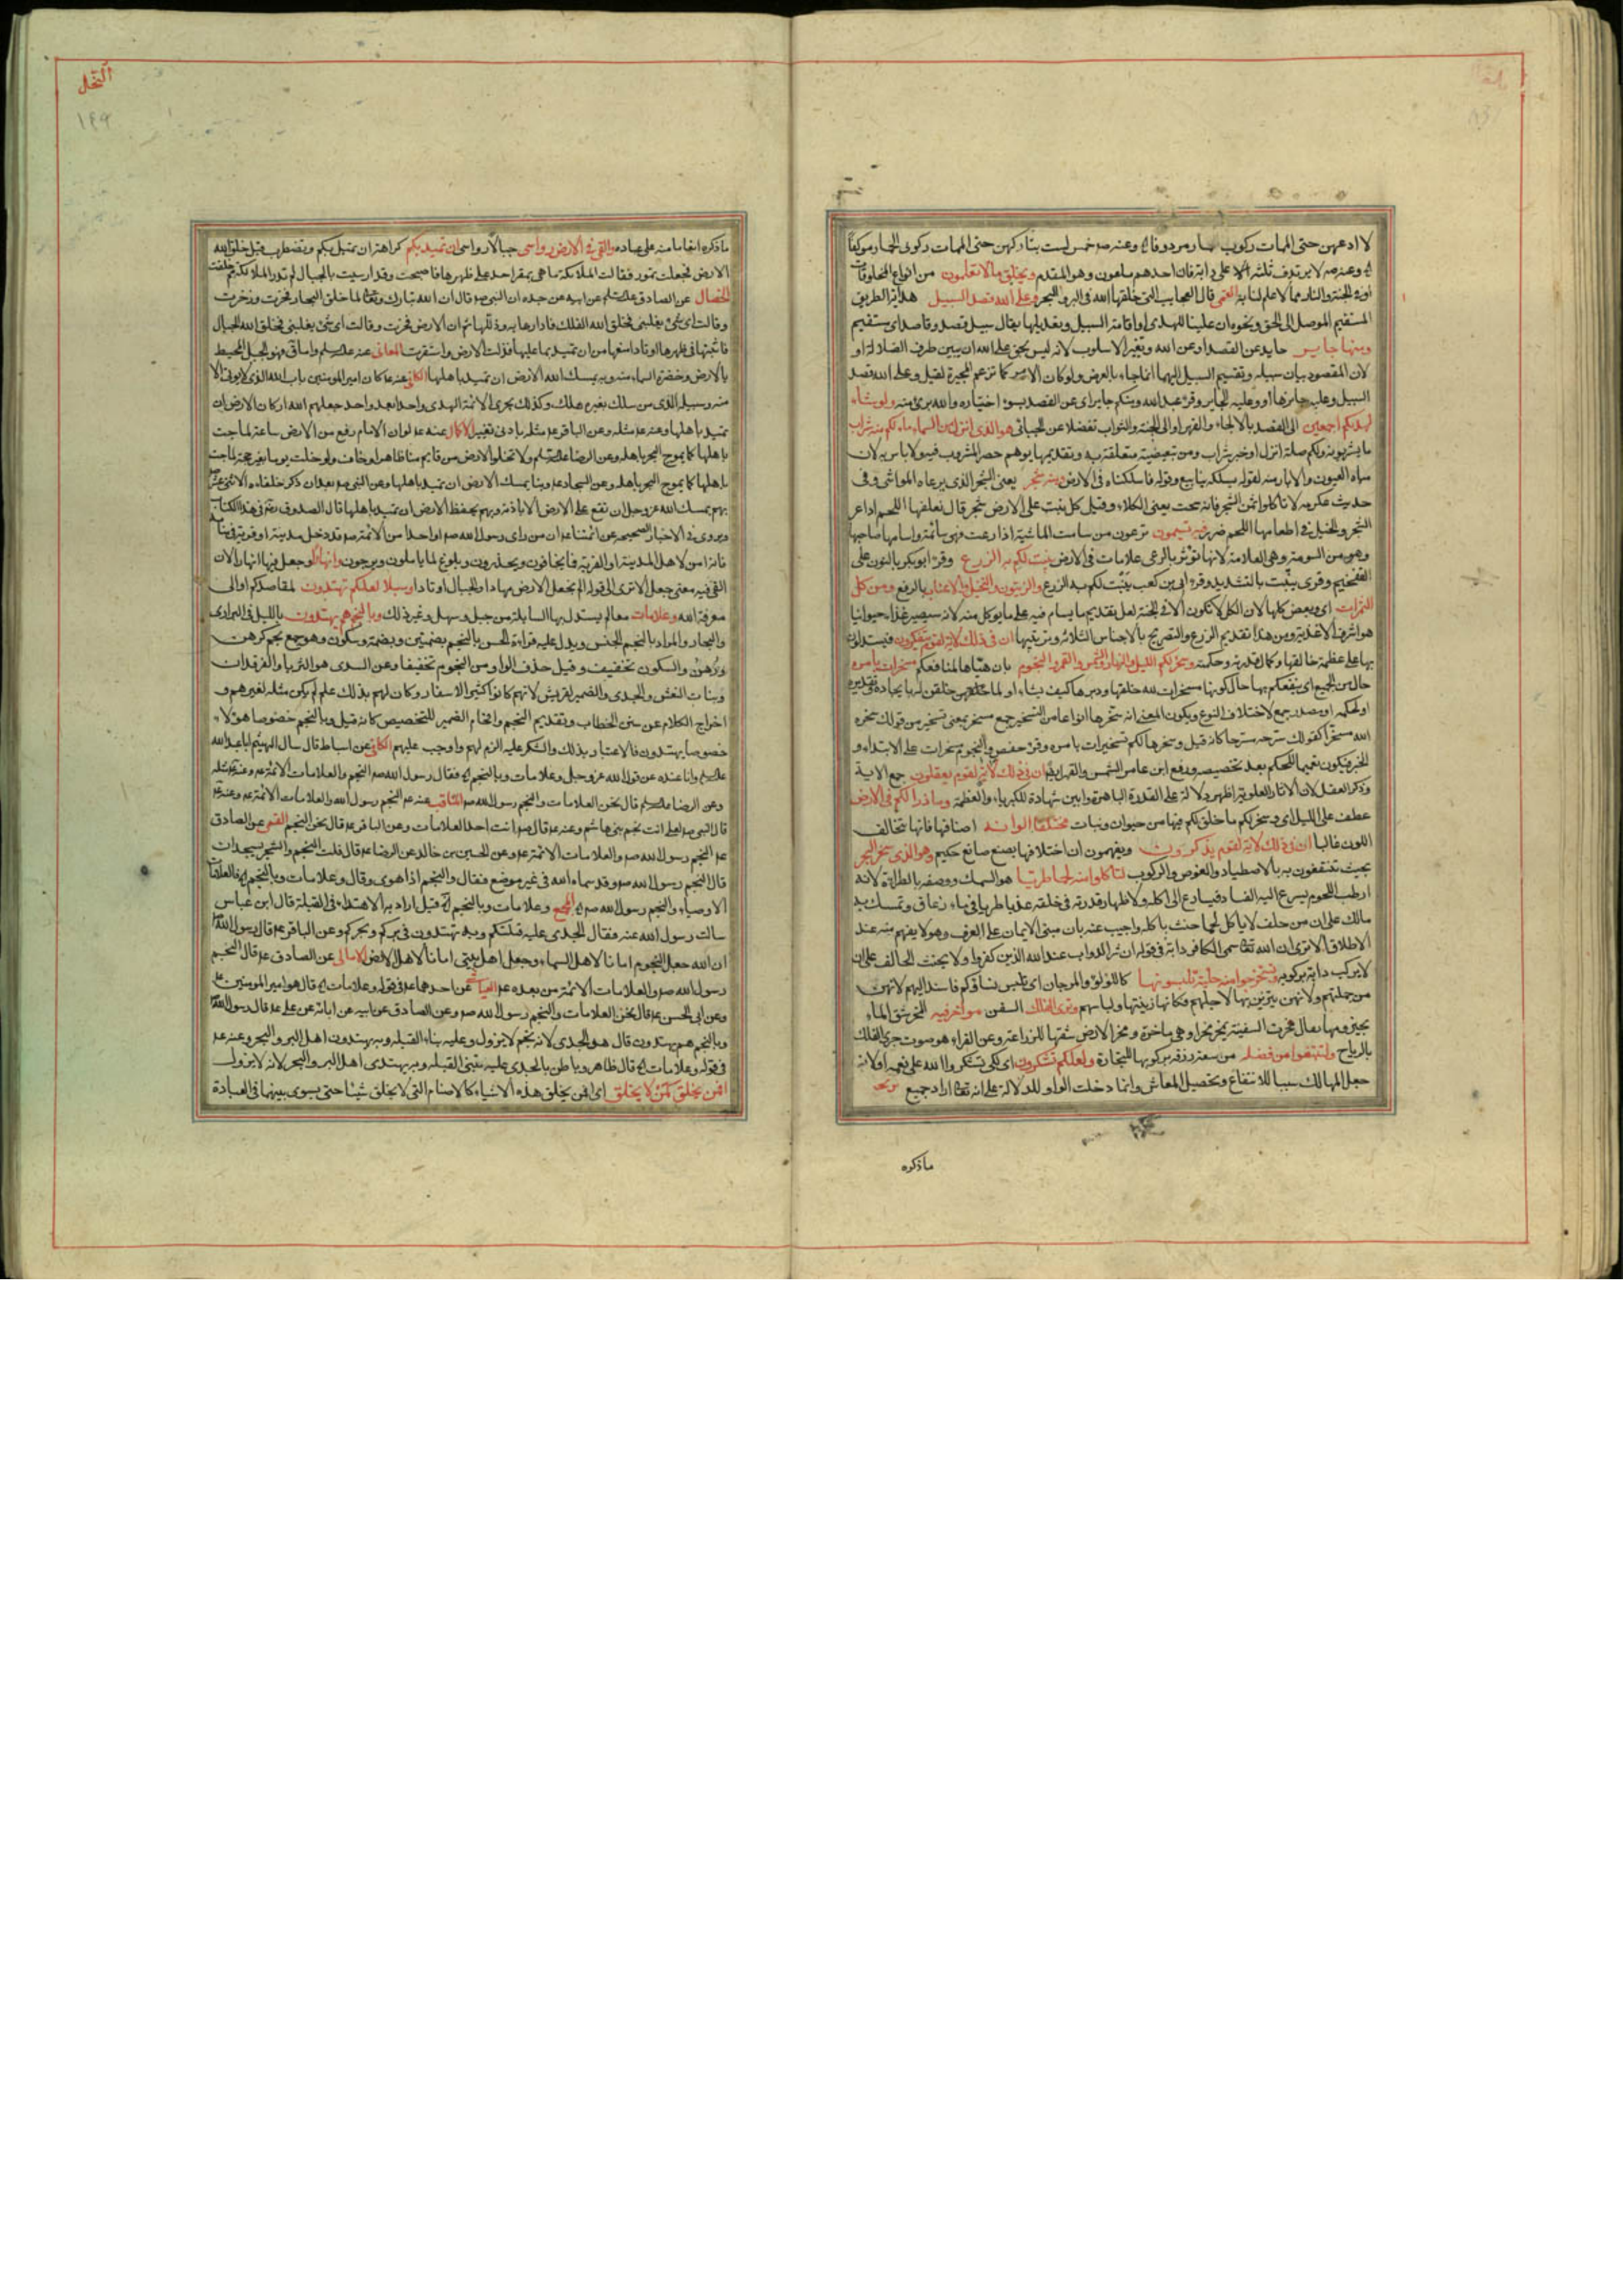 لا ادعهن حتى الممات ركوب الحمار مردوفا وعنه ص خمس لست بتاركهن حتى الممات ركوبى الحمار موكفا
وعنه ص لا يرتدف ثلثة على دابة فان احدهم ملعون وهو المقدم ويخلق ما لا تعلمون من انواع المخلوقات
او فى الجنة والنار مما لا علم لنا به القمى قال العجايب التى خلقها الله فى البر والبحر وعلى الله قصد السبيل هداية الطريق
المستقيم الموصل الى الحق ونحوه ان علينا للهدى او اقامة السبيل وتعديلها يقال سبيل قصد وقاصد اى مستقيم
ومنها جاير حايد عن القصد او عن الله وتغير الاسلوب لانه ليس بحق على الله ان يبين طرق الضلالة او
لان المقصود بيان سبيله وتقسيم السبيل اليهما انما جاء بالعرض ولو كان الامر كما تزعم المجبرة لقيل وعلى الله قصد
السبيل وعليه جايرها او وعليه الجاير وقرء عبد الله ومنكم جاير اى عن القصد بسوء اختياره والله برئ منه ولو شاء
لهديكم اجمعين الى القصد بالالجاء والقهر او الى الجنة والثواب تفضلا عن الجبائى هو الذى انزل من السماء ماء لكم منه شراب
ما يشربونه ولكم صلة انزل او خبر شراب ومن تبعيضية متعلقة به وتقديمها يوهم حصر المشروب فيه ولا باس به لان
مياه العيون والابار منه لقوله فسلكه ينابيع وقوله فاسكناه فى الارض ومنه شجر يعنى الشجر الذى يرعاه المواشى وفى
حديث عكرمه لا تاكلوا ثمن الشجر فانه سحت يعنى الكلاء وقيل كل نبت على الارض شجر قال نعلفها اللحم اذا عز
الشجر والخيل فى اطعامها اللحم ضرر فيه تسيمون ترعون من سامت الماشية اذا رعت فهى سائمة واسامها صاحبها
وهو من السومة وهى العلامة لانها تؤثر بالرعى علامات فى الارض ينبت لكم به الزرع وقرء ابو بكر بالنون على
التفخيم وقرى ينبت بالتشديد وقرء ابى بن كعب ينبت لكم به الزرع والزيتون والنخيل والاعناب بالرفع ومن كل
الثمرات اى وبعض كلها لان الكل لا تكون الا فى الجنة لعل تقديم ما يسام فيه على ما يوكل منه لانه سيصير غذاء حيوانيا
هو اشرف الاغذية ومن هذا تقديم الزرع والتصريح بالاجناس الثلاثة وترتيبها ان فى ذلك لاية لقوم يتفكرون فيستدلون
بها على عظمة خالقها وكمال قدرته وحكمته وسخر لكم الليل والنهار والشمس والقمر والنجوم بان هياها لمنافعكم مسخرات بامره
حال من الجميع اى ينفعكم بها حال كونها مسخرات لله خلقها ودبرها كيف يشاء او لما خلقهن خالقهن له بايجاده وتقديره
او لحكمه او مصدر جمع لاختلاف النوع ويكون المعنى انه سخرها انواعا من التسخير جمع مسخر بمعنى تسخير من قولك سخره
الله مسخرا كقولك سرحه مسرحا كانه قيل وسخرها لكم تسخيرات بامره وقرء حفص والنجوم مسخرات على الابتداء و
الخبر فيكون تعميما للحكم بعد تخصيصه ورفع ابن عامر الشمس والقمر ايضا ان فى ذلك لايات لقوم يعقلون جمع الاية
وذكر العقل لان الاثار العلوية اظهر دلالة على القدرة الباهرة وابين شهادة للكبرياء والعظمة وما ذرا لكم فى الارض
عطف على الليل اى وسخر لكم ما خلق لكم فيها من حيوان ونبات مختلفا الوانه اصنافها فانها تتخالف
اللون غالبا ان فى ذلك لاية لقوم يذكرون ويفهمون ان اختلافها بصنع صانع حكيم وهو الذى سخر البحر
بحيث تنتفعون به بالاصطياد والغوص والركوب لتاكلوا منه لحما طريا هو السمك ووصفه بالطراوة لانه
ارطب اللحوم يسرع اليه الفساد فيسارع الى اكله ولاظهار قدرته فى خلقه عذبا طريا فى ماء زعاق وتمسك به
مالك على ان من حلف لا ياكل لحما حنث باكله واجيب عنه بان مبنى الايمان على العرف وهو لا يفهم منه عند
الاطلاق الا ترى ان الله تعا سمى الكافر دابة فى قوله ان شر الدواب عند الله الذين كفروا ولا يحنث الحالف على ان
لا يركب دابة بركوبه وتستخرجوا منه حلية تلبسونها كاللؤلؤ والمرجان اى تلبس نساؤكم فاسند اليهم لانهن
من جملتهم ولانهن يتزين بها لاجلهم فكانها زينتها ولباسهم وترى الفلك السفن مواخر فيه المخر شق الماء
بحيزومها يقال مخرت السفينة يمخر مخرا وهى ماخرة ومخر الارض شقها للزراعة وعن الفراء هو صوت جرى الفلك
بالرياح ولتبتغوا من فضله من سعة رزقه بركوبها للتجارة ولعلكم تشكرون اى لكى تشكروا الله على نعمه اولانه
جعل المهالك سببا للانتفاع وتحصيل المعاش وانما دخلت الواو للدلالة على انه تعا اراد جميع
ماذكره
النحل
١٤٩
ماذكره انعاما منه على عباده والقى فى الارض رواسى جبالا رواسى ان تميد بكم كراهة ان تميل بكم وتضطرب قيل خلق الله
الارض فجعلت تمور فقالت الملائكة ما هى بمقر احد على ظهرها فاصبحت وقد ارسيت بالجبال لم تدر الملائكة مم خلقت
الخصال عن الصادق عليه السلم عن ابيه عن جده ان النبى ص قال ان الله تبارك وتعا لما خلق البحار فخرت وزخرت
وقالت اى شئ يغلبنى فخلق الله الفلك فادارها به وذللها ثم ان الارض فخرت وقالت اى شئ يغلبنى فخلق الله الجبال
فاثبتها فى ظهرها اوتادا منعها من ان تميد بما عليها فذلت الارض واستقرت المعانى عنه عليه السلم واما ق فهو الجبل المحيط
بالارض وخضرة السماء منه وبه يمسك الله الارض ان تميد باهلها الكافى عنه ع كان امير المومنين باب الله الذى لا يوتى الا
منه وسبيله الذى من سلك بغيره هلك وكذلك يجرى الائمة الهدى واحدا بعد واحد جعلهم الله اركان الارض ان
تميد باهلها وعنه ع مثله وعن الباقر ع مثله بادنى تغيير الاكمال عنه ع لو ان الامام رفع من الارض ساعة لماجت
باهلها كما يموج البحر باهله وعن الرضا عليه السلم ولا تخلو الارض من قايم منا ظاهر او خاف ولو خلت يوما بغير حجة لماجت
باهلها كما يموج البحر باهله وعن السجاد ع وبنا يمسك الارض ان تميد باهلها وعن النبى ص بعد ان ذكر خلفاءه الاثنى عشر
بهم يمسك الله عز وجل ان تقع على الارض الا باذنه وبهم يحفظ الارض ان تميد باهلها قال الصدوق ره فى هذا الكتاب
ويروى فى الاخبار الصحيحه عن ائمتنا ع ان من راى رسول الله ص او احدا من الائمة ص قد دخل مدينة او قرية فى منامه
فانه امن لاهل المدينة او القرية مما يخافون ويحذرون وبلوغ لما ياملون ويرجون وانهارا وجعل فيها انهارا لان
القى فيه معنى جعل الا ترى الى قوله الم نجعل الارض مهادا والجبال اوتادا وسبلا لعلكم تهتدون لمقاصدكم او الى
معرفة الله وعلامات معالم يستدل بها السابلة من جبل وسهل وغير ذلك وبالنجم هم يهتدون بالليل فى البرارى
والبحار والمراد بالنجم الجنس ويدل عليه قراءة الحسن بالنجم بضمتين وبضمة وسكون وهو جمع نجم كرهن
ورهن والسكون تخفيف وقيل حذف الواو من النجوم تخفيفا وعن السدى هو الثريا والفرقدان
وبنات النعش والجدى والضمير لقريش لانهم كانوا كثيرى الاسفار وكان لهم بذلك علم لم يكن مثله لغيرهم و
اخراج الكلام عن سنن الخطاب وتقديم النجم واقحام الضمير للتخصيص كانه قيل وبالنجم خصوصا هؤلاء
خصوصا يهتدون فالاعتبار بذلك والشكر عليه الزم لهم واوجب عليهم الكافى عن اسباط قال سال الهيثم ابا عبد الله
عليه السلم وانا عنده عن قول الله عز وجل وعلامات وبالنجم فقال رسول الله ص النجم والعلامات الائمة ع وعنه ع مثله
وعن الرضا عليه السلم قال نحن العلامات والنجم رسول الله ص المناقب عنه ع النجم رسول الله والعلامات الائمة ع وعنه ع
قال النبى ص لعلى انت نجم بنى هاشم وعنه ع قال ص انت احد العلامات وعن الباقر ع قال نحن النجم القمى عن الصادق
ع النجم رسول الله ص والعلامات الائمة ع وعن الحسين بن خالد عن الرضا ع قال قلت النجم والشجر يسجدان
قال النجم رسول الله ص وقد سماه الله فى غير موضع فقال والنجم اذا هوى وقال وعلامات وبالنجم فالعلامات
الاوصياء والنجم رسول الله ص المجمع وعلامات وبالنجم قيل اراد به الاهتداء فى القبلة قال ابن عباس
سالت رسول الله عنه فقال الجدى عليه قبلتكم وبه تهتدون فى بركم وبحركم وعن الباقر ع قال رسول الله ص
ان الله جعل النجوم امانا لاهل السماء وجعل اهل بيتى امانا لاهل الارض الامالى عن الصادق ع قال النجم
رسول الله ص والعلامات الائمة من بعده ع العياشى عن احدهما ع فى قوله وعلامات قال هو امير المومنين ع
وعن ابى الحسن ع قال نحن العلامات والنجم رسول الله ص وعن الصادق عن ابيه عن ابائه عن على ع قال رسول الله ص
وبالنجم هم يهتدون قال هو الجدى لانه نجم لا يزول وعليه بناء القبلة وبه يهتدون اهل البر والبحر وعنه ع
فى قوله وعلامات قال ظاهر وباطن بالجدى عليه يبتنى القبلة وبه يهتدى اهل البر والبحر لانه لا يزول
افمن يخلق كمن لا يخلق اى افمن يخلق هذه الاشياء كالاصنام التى لا يخلق شيئا حتى يسوى بينهما فى العبادة